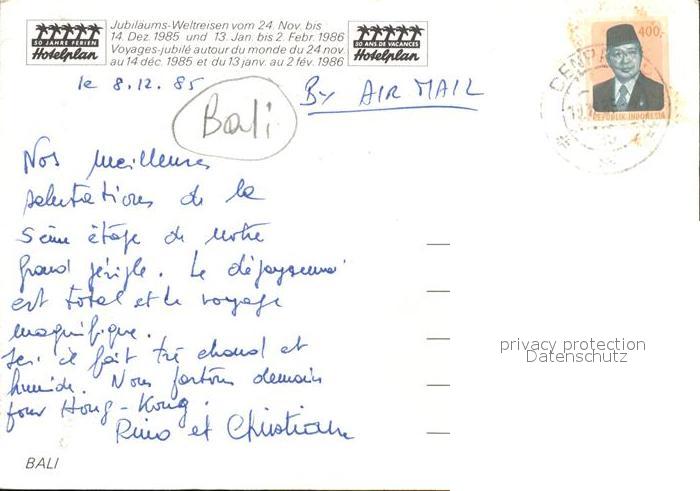 50 JAHRE FERIEN
Hotelplan
Jubiläums-Weltreisen vom 24. Nov. bis
14. Dez. 1985 und 13. Jan. bis 2. Febr. 1986
Voyages-jubilé autour du monde du 24 nov.
au 14 déc. 1985 et du 13 janv. au 2 fév. 1986
50 ANS DE VACANCES
Hotelplan
400,-
REPUBLIK INDONESIA
DENPA
le 8.12.85
By AIR MAIL
Bali
Nos meilleures
salutations de la
5ème étape de notre
grand périple. Le dépaysement
est total et le voyage
magnifique.
Ici il fait très chaud et
humide. Nous partons demain
pour Hong-Kong.
Rino et Christiane
privacy protection
Datenschutz
BALI